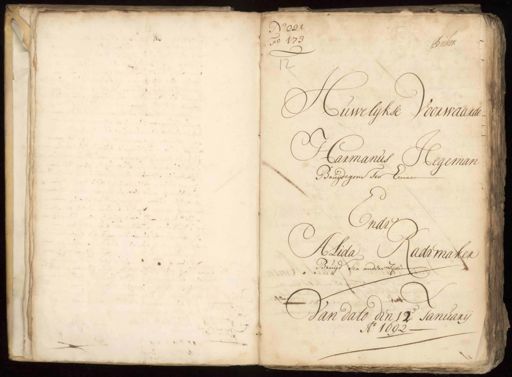 No 221
Fo 173
12
Huwelijkse Voorwaarde
Harmanus Hegeman
Bruijdegom Ter Eenre
Ende
Alida Rademaker
Bruijd ter andere zyde
Van dato den 12e January
Ao 1692